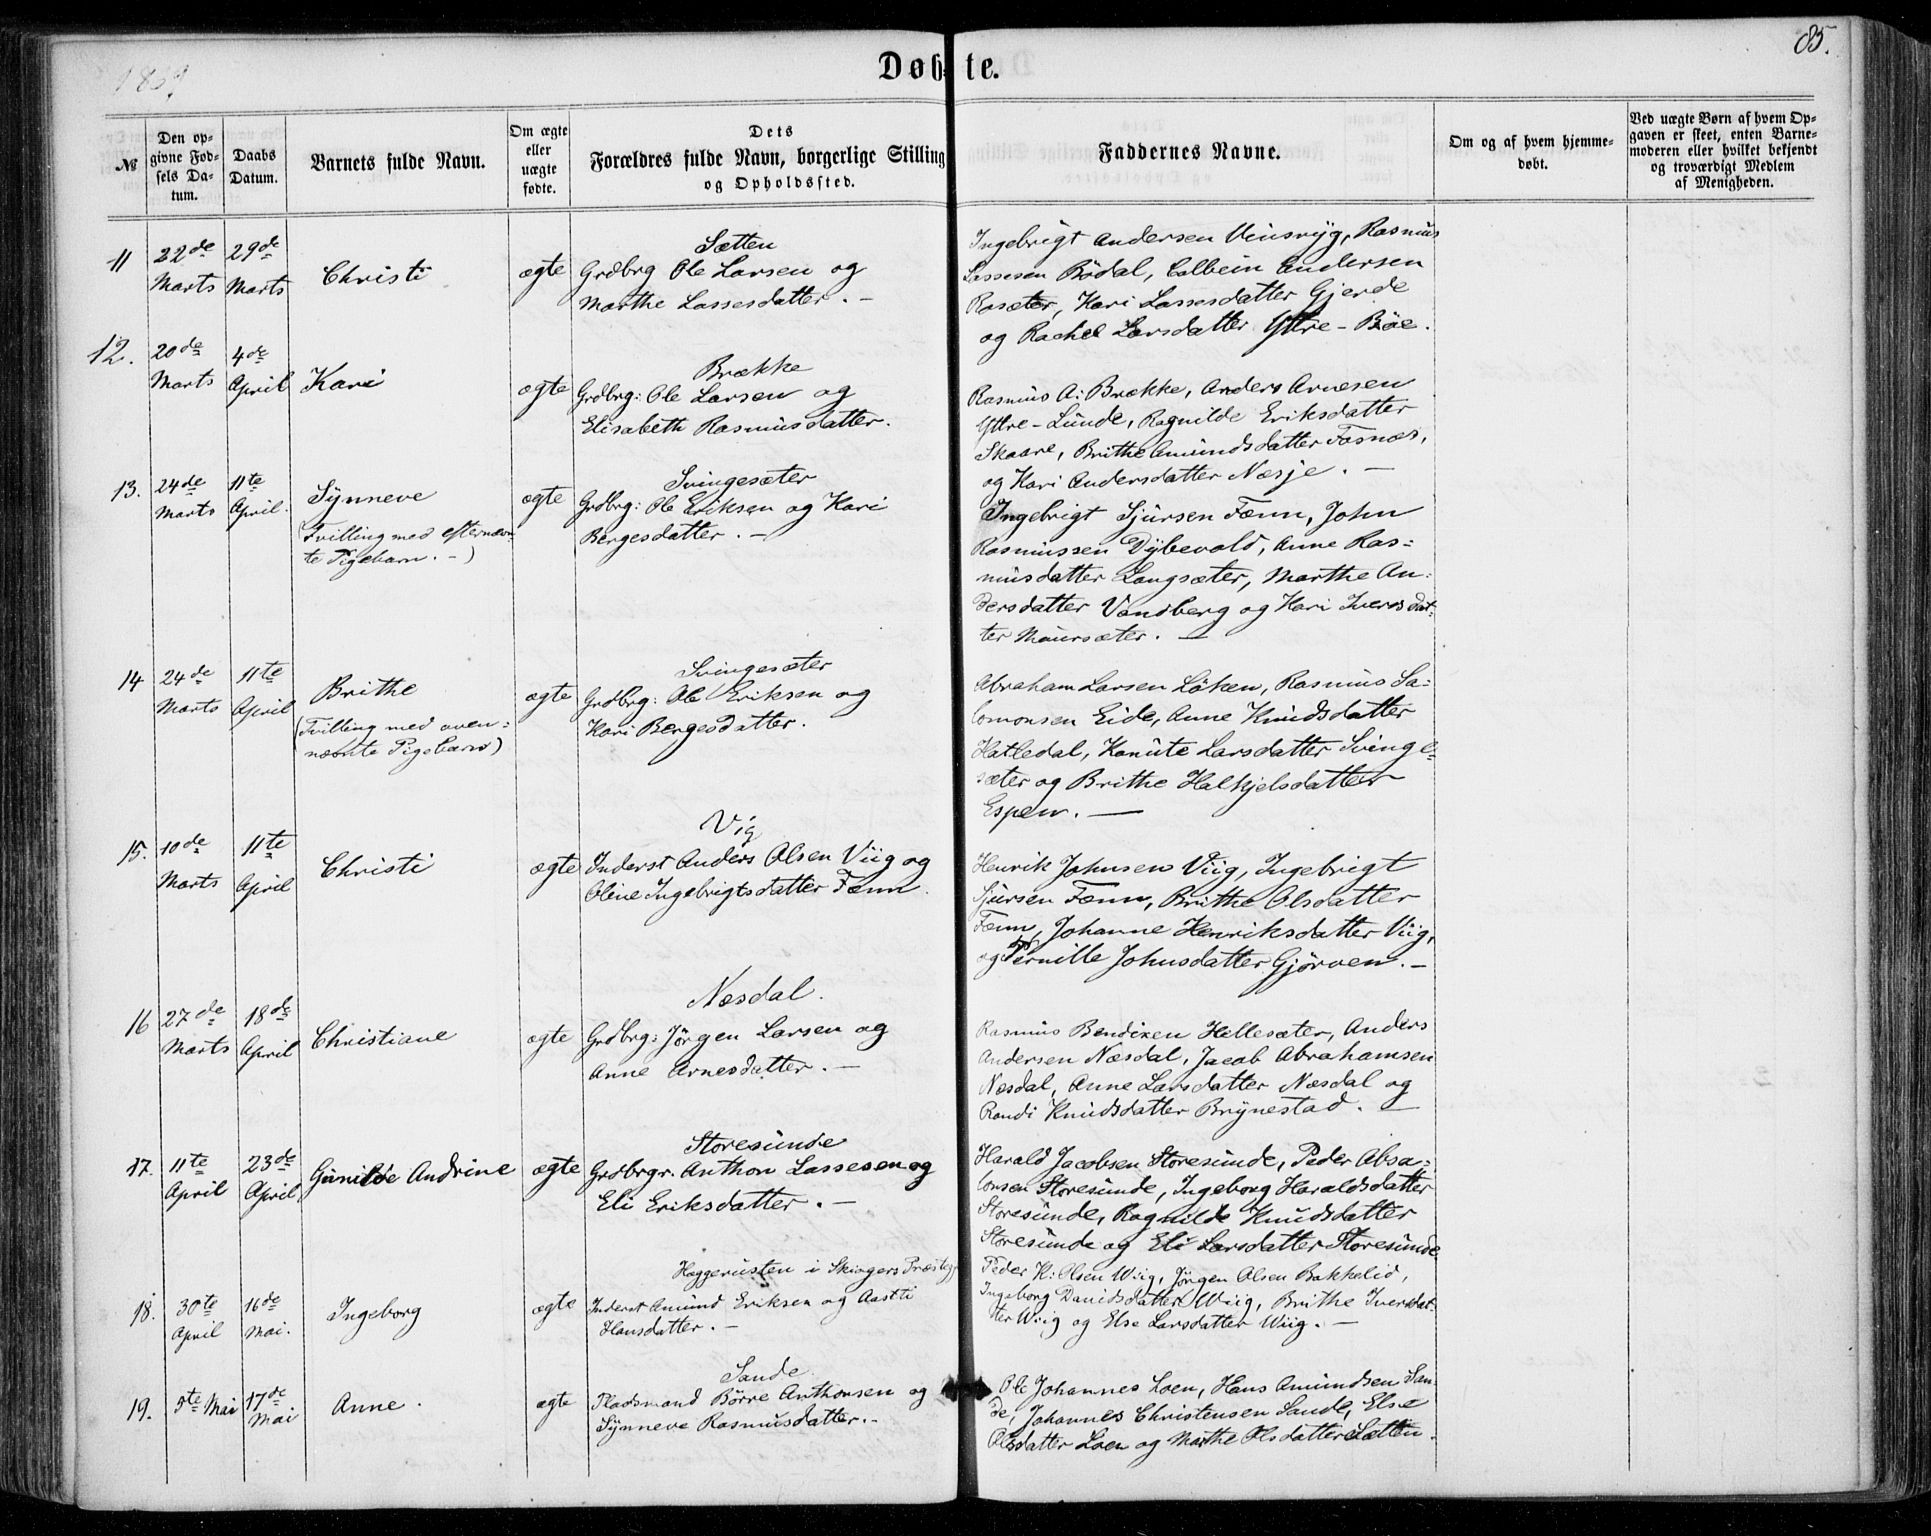 1869
Døbte.
85.
№
Den opgivne Fødsels Datum.
Daabs Datum.
Barnets fulde Navn.
Om ægte eller uægte fødte.
Dets Forældres fulde Navn, borgerlige Stilling og Opholdssted.
Faddernes Navne.
Om og af hvem hjemmedøbt.
Ved uægte Børn af hvem Opgaven er skeet, enten Barnemoderen eller hvilket bekjendt og troværdigt Medlem af Menigheden.
11
22de Marts
29de Marts
Christi
ægte
Sætten
Grdbrg Ole Larsen og
Marthe Lassesdatter. –
Ingebrigt Andersen Vinsryg, Rasmus
Lassesen Bödal, Colbein Andersen
Rosæter, Kari Lassesdatter Gjerde
og Rachel Larsdatter Yttre-Böe.
12.
20de Marts
4de April
Kari
ægte
Brække
Grdbrg: Ole Larsen og
Elisabeth Rasmusdatter.
Rasmus A: Brække, Anders Arnesen
Yttre-Lunde, Ragnilde Eriksdatter
Skaare, Brithe Amundsdatter Fosnæs,
og Kari Andersdatter Næsje. –
13.
24de Marts
11te April.
Synneve
(Tvilling med efternævn-
te Pigebarn. –)
ægte
Svingesæter
Grdbrg: Ole Eriksen og Kari
Bergesdatter. –
Ingebrigt Sjursen Fænn, John
Rasmussen Dybevold, Anne Ras-
musdatter Langsæter, Marthe An-
dersdatter Vandberg og Kari Iversdat-
ter Maursæter. –
14
24de Marts
11te April
Brithe
(Tvilling med oven-
nævnte Pigebarn)
ægte
Svingesæter
Grdbrg: Ole Eriksen og
Kari Bergesdatter.
Abraham Larsen Löken, Rasmus Sa-
lomonsen Eide, Anne Knudsdatter
Hatledal, Kanute Larsdatter Svinge-
sæter og Brithe Halkjelsdatter
Espen. –
15.
10de Marts
11te April
Christi
ægte
Vig
Inderst Anders Olsen Viig og
Oline Ingebrigtsdatter Fænn.
Henrik Johnsen Viig, Ingebrigt
Sjursen Fænn, Brithe Olsdatter
Fænn, Johanne Henriksdatter Viig,
og Pernille Johnsdatter Gjörven. –
16
27de Marts
18de April
Christiane
ægte
Næsdal.
Grdbrg: Jörgen Larsen og
Anne Arnesdatter. –
Rasmus Bendixen Hellesæter, Anders
Andersen Næsdal, Jacob Abrahamsen
Næsdal, Anne Larsdatter Næsdal og
Randi Knudsdatter Brynestad. –
17.
11te April
23de April
Gunilde Andrine
ægte
Storesunde
Grdbrgr. Anthon Lassesen og
Eli Eriksdatter. –
Harald Jacobsen Storesunde, Peder Absa-
lonsen Storesunde, Ingeborg Haraldsdatter
Storesunde, Ragnilde Knudsdatter
Storesunde og Eli Larsdatter Storesunde
18.
30te April
16de Mai.
Ingeborg
ægte
Haggerusten i Skiagers Præstegj
Inderst Amund Eriksen og Aasti
Hansdatter. –
Peder K: Olsen Wiig, Jörgen Olsen Bakkelid,
Ingeborg Davidsdatter Wiig, Brithe Iversdat-
ter Wiig og Else Larsdatter Wiig. –
19.
5te Mai
17de Mai
Anne.
ægte
Sande.
Pladsmand Börre Anthonsen og
Synneve Rasmusdatter. –
Ole Johannes Loen, Hans Amundsen San-
de, Johannes Christensen Sande, Else
Olsdatter Loen og Marthe Olsdatter Sætten.